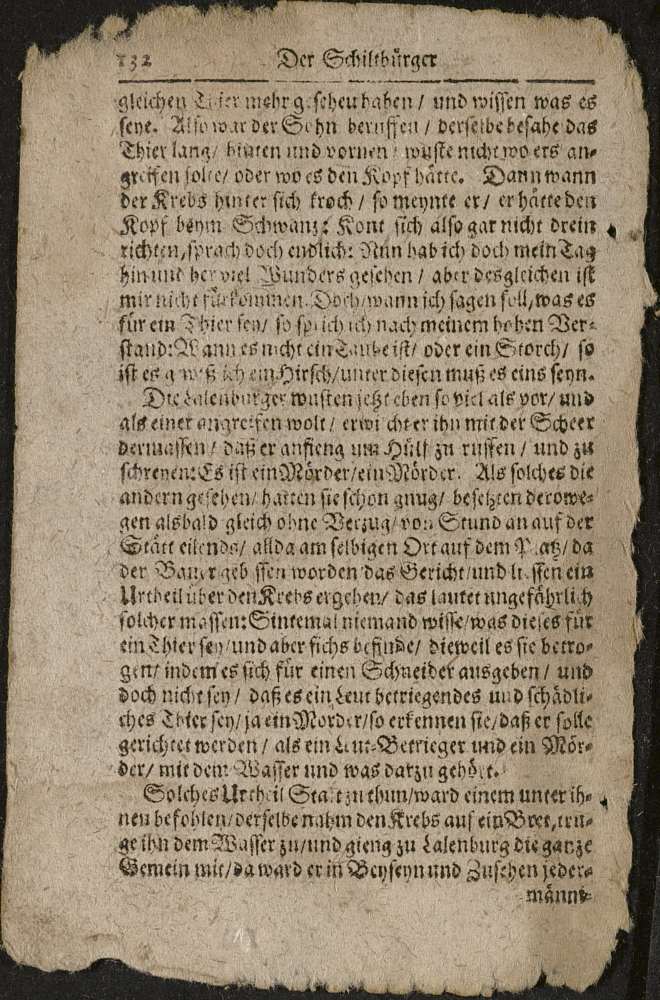 132 Der Schiltbürger
gleichen Thier mehr gesehen haben / und wissen was es
seye. Also war der Sohn beruffen / derselbe besahe das
Thier lang / hinten und vornen / wuste nicht wo ers an-
greifen solte / oder wo es den Kopf hätte. Dann wann
der Krebs hinter sich kroch / so meynte er / er hätte den
Kopf beym Schwantz: Kont sich also gar nicht drein
richten, sprach doch endlich: Nun hab ich doch mein Tag
hin und her viel Wunders gesehen / aber desgleichen ist
mir nicht fürkommen. Doch / wann ich sagen soll, was es
für ein Thier sey / so sprich ich nach meinem hohen Ver-
stand: Wann es nicht ein Taube ist / oder ein Storch / so
ist es gewiß ein Hirsch / unter diesen muß es eins seyn.
Die Lalenburger wusten jetzt eben so viel als vor / und
als einer angreifen wolt / erwischt er ihn mit der Scheer
dermassen / daß er anfieng um Hülf zu ruffen / und zu
schreyen: Es ist ein Mörder / ein Mörder. Als solches die
andern gesehen / hatten sie schon gnug / besetzten derowe-
gen alsbald gleich ohne Verzug / von Stund an auf der
Stätt eilends / allda am selbigen Ort auf dem Platz / da
der Bauer gebissen worden das Gericht / und liessen ein
Urtheil über den Krebs ergehen / das lautet ungefährlich
solcher massen: Sintemal niemand wisse / was dieses für
ein Thier sey / und aber sichs befinde / dieweil es sie betro-
gen / indem es sich für einen Schneider ausgeben / und
doch nicht sey / daß es ein Leut betriegendes und schädli-
ches Thier sey / ja ein Mörder / so erkennen sie / daß er solle
gerichtet werden / als ein Leut-Betrieger und ein Mör-
der / mit dem Wasser und was darzu gehört.
Solches Urtheil Statt zu thun / ward einem unter ih-
nen befohlen / derselbe nahm den Krebs auf ein Bret, tru-
ge ihn dem Wasser zu / und gieng zu Lalenburg die gantze
Gemein mit / da ward er in Beyseyn und Zusehen jeder-
männi-